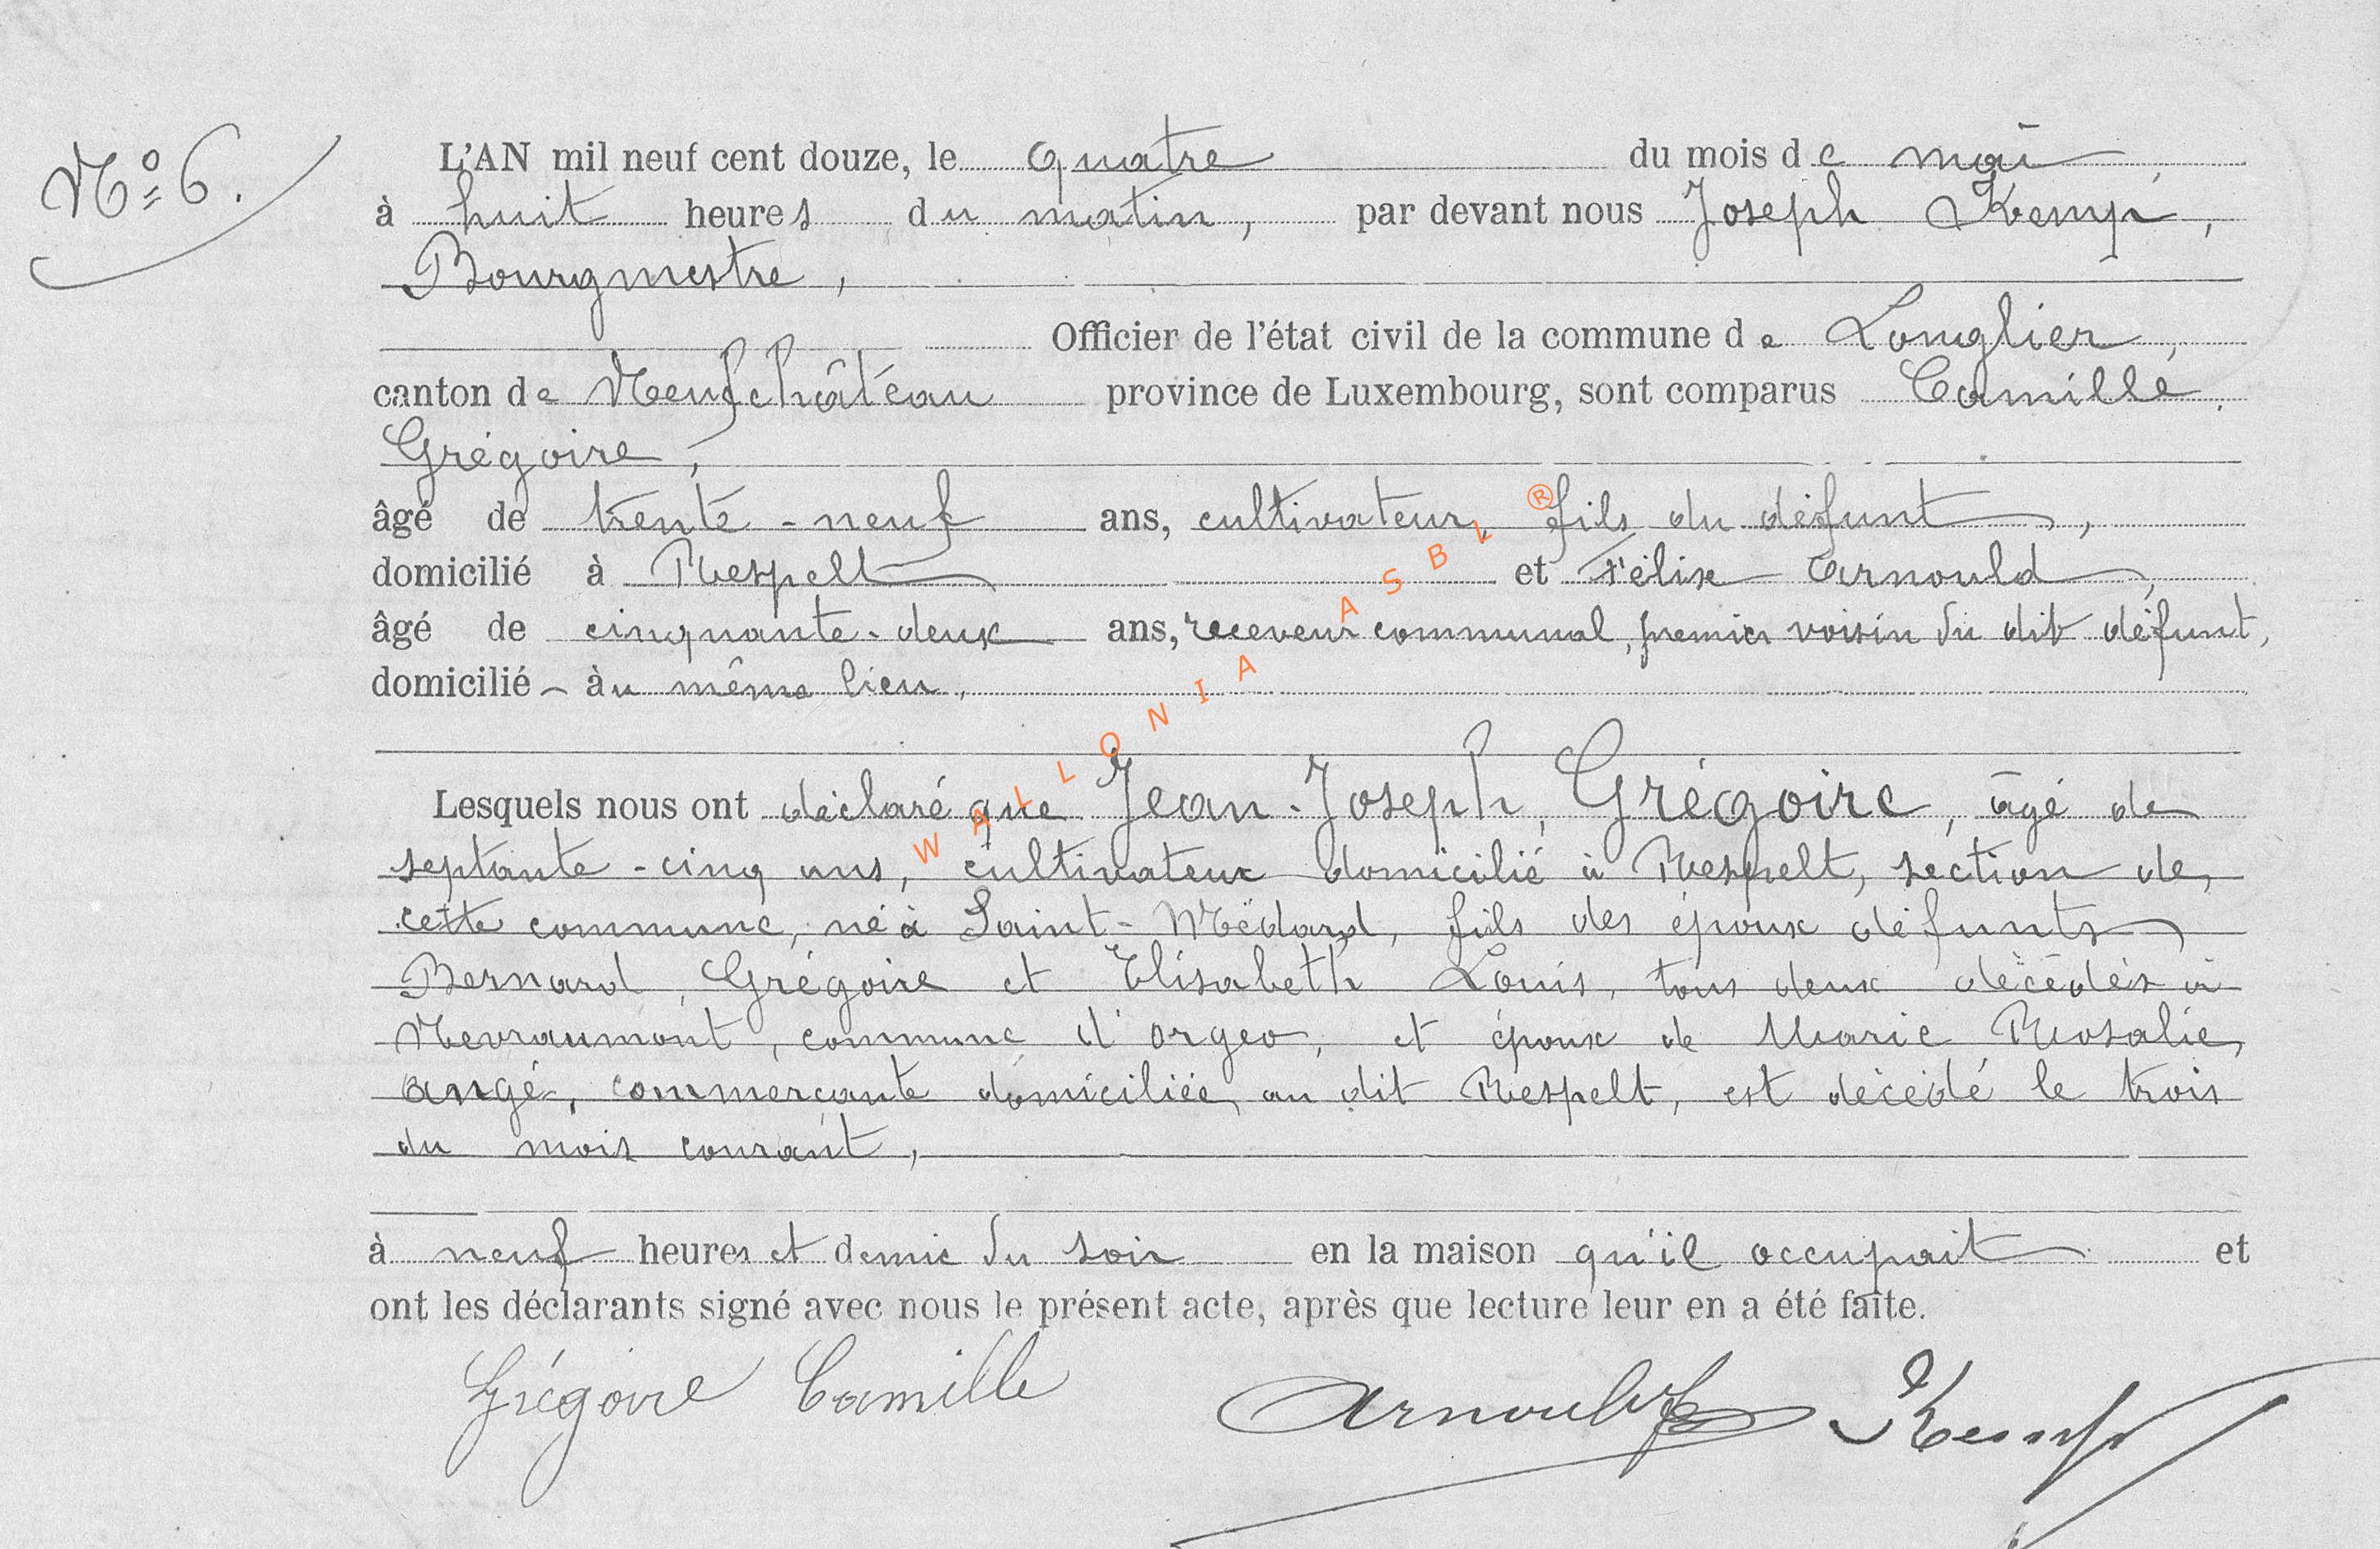 N° 6.
L'AN mil neuf cent douze, le quatre du mois de mai,
à huit heures du matin, par devant nous Joseph Kemp,
Bourgmestre,
Officier de l'état civil de la commune de Longlier,
canton de Neufchâteau province de Luxembourg, sont comparus Camille
Grégoire,
âgé de trente-neuf ans, cultivateur, fils du défunt,
domicilié à Respelt et Félix Arnould,
âgé de cinquante-deux ans, receveur communal, premier voisin du dit défunt,
domicilié - au même lieu,
Lesquels nous ont déclaré que Jean-Joseph, Grégoire, âgé de
septante-cinq ans, cultivateur domicilié à Respelt, section de
cette commune, né à Saint-Médard, fils des époux défunts
Bernard, Grégoire et Elisabeth Louis, tous deux décédés à
Nevraumont, commune d'orgeo, et époux de Marie Rosalie
Angé, commerçante domiciliée au dit Respelt, est décédé le trois
du mois courant,
à neuf heures et demie du soir en la maison qu'il occupait et
ont les déclarants signé avec nous le présent acte, après que lecture leur en a été faite.
Grégoire Camille Arnould Kemp
WALLONIA ASBL ®